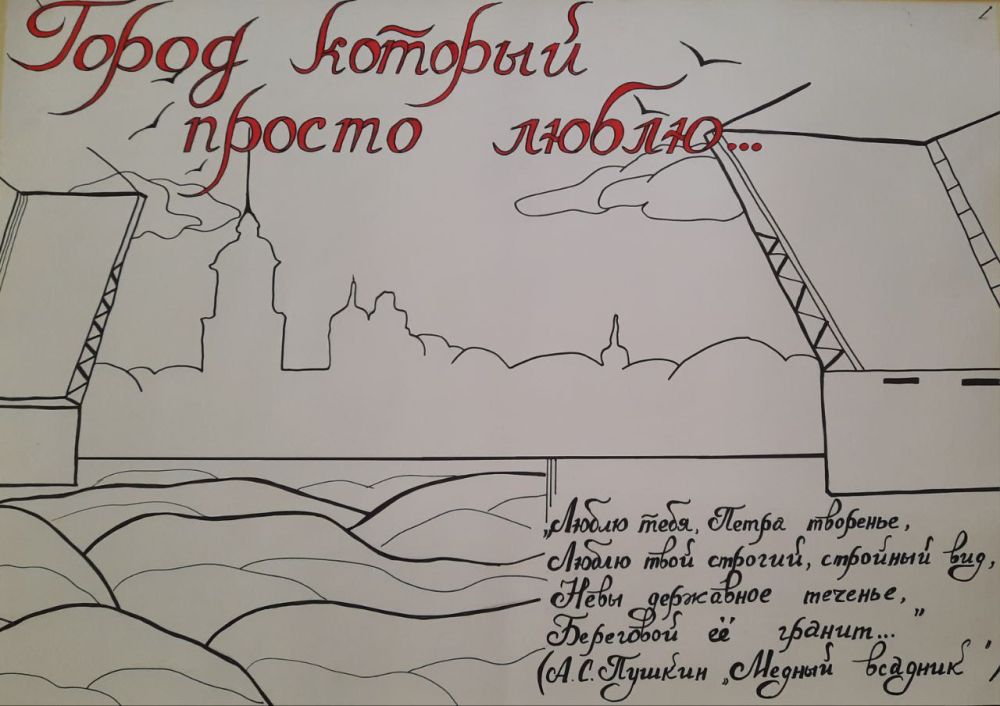 Город который
просто люблю...
„Люблю тебя, Петра творенье,
Люблю твой строгий, стройный вид,
Невы державное теченье,
Береговой её гранит..."
(А.С.Пушкин „Медный всадник")